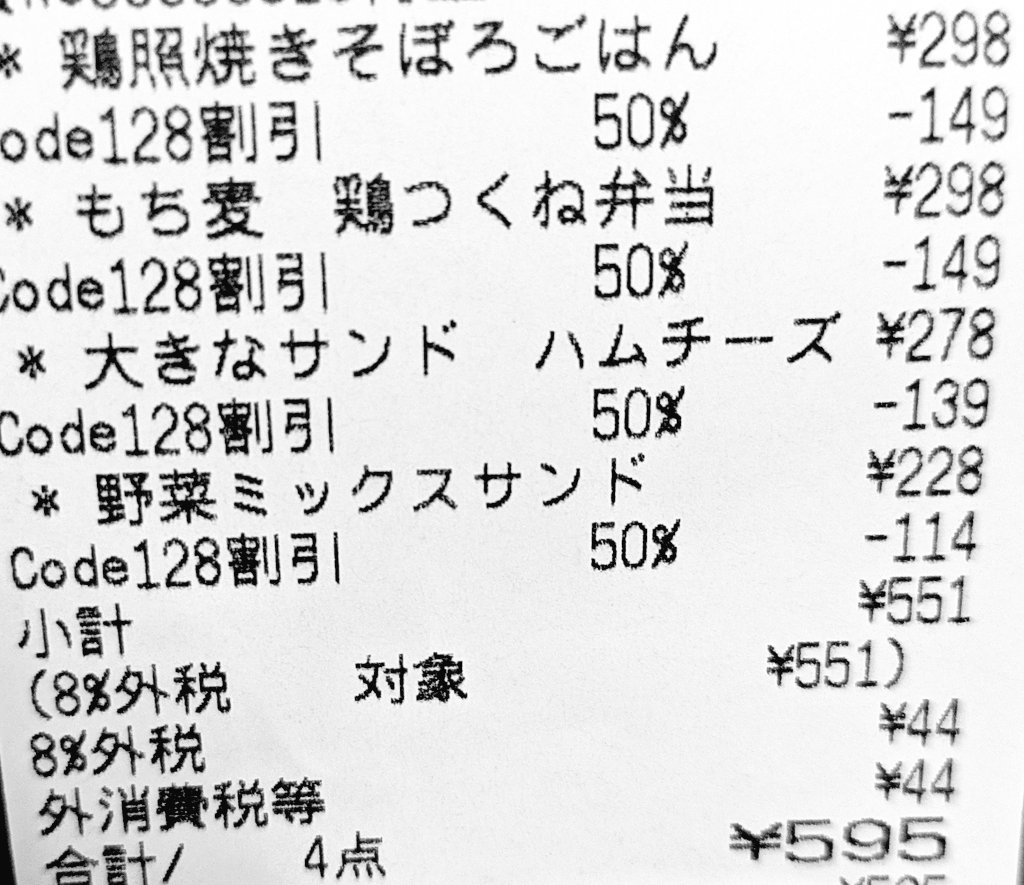 * 鶏照焼きそぼろごはん ¥298
ode128割引 50% -149
* もち麦 鶏つくね弁当 ¥298
Code128割引 50% -149
* 大きなサンド ハムチーズ ¥278
Code128割引 50% -139
* 野菜ミックスサンド ¥228
Code128割引 50% -114
小計 ¥551
(8%外税 対象 ¥551)
8%外税 ¥44
外消費税等 ¥44
合計/ 4点 ¥595